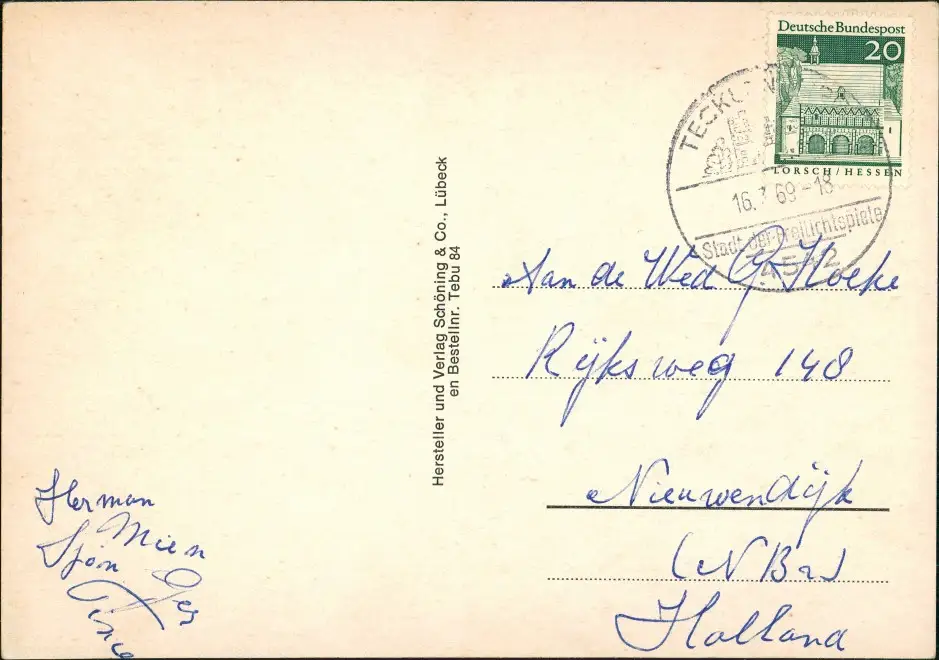 Deutsche Bundespost
20
LORSCH / HESSEN
TECKL
16. 69-18
Stadt der Freilichtspiele
4542
Hersteller und Verlag Schöning & Co., Lübeck
en Bestellnr. Tebu 84
Aan de Wed G Hoeke
Rijksweg 148
Nieuwendijk
(N Br)
Holland
Herman
Mien
Sjon
Ger